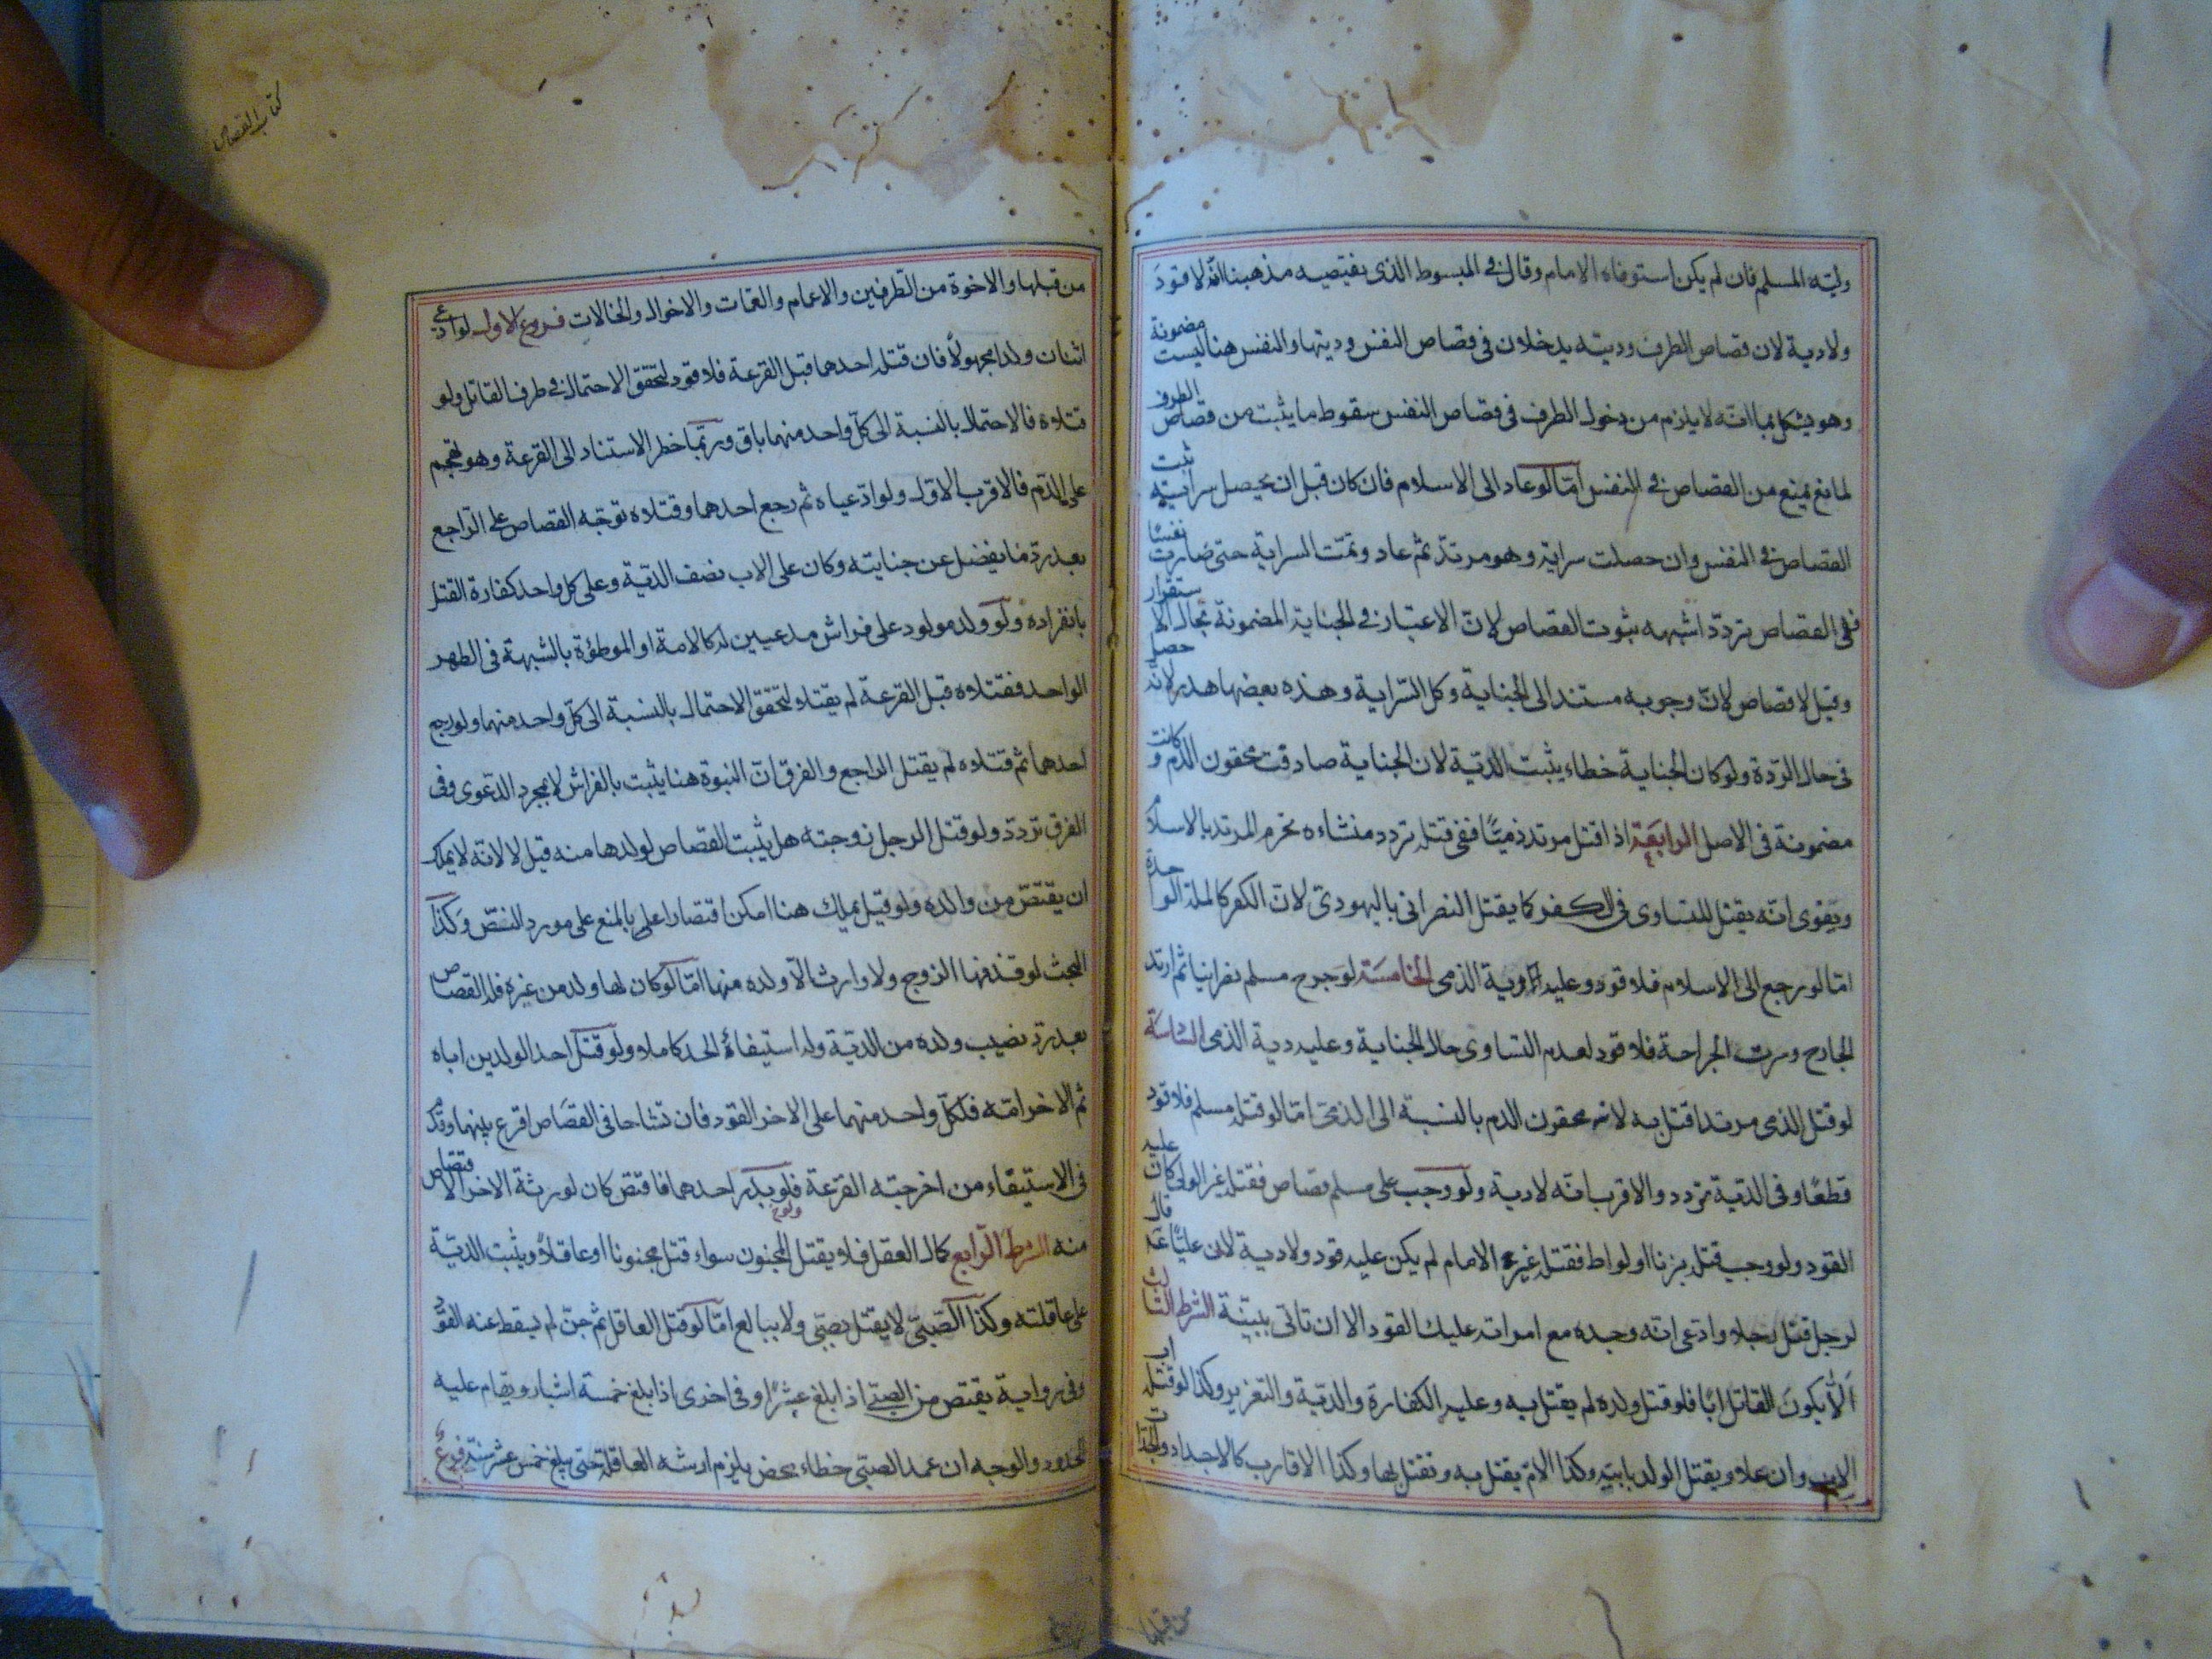 وليّه المسلم فان لم يكن استوفاه الامام وقال في المبسوط الذي يقتضيه مذهبنا انّه لا قود
ولا دية لان قصاص الطرف وديته يدخلان في قصاص النفس وديتها والنفس هنا ليست مضمونة
وهو يشكل بما انّه لا يلزم من دخول الطرف في قصاص النفس سقوط ما يثبت من قصاص الطرف
لمانع يمنع من القصاص في النفس امّا لو عاد الى الاسلام فان كان قبل ان يحصل سرايته ثبت
القصاص في النفس وان حصلت سراية وهو مرتدّ ثم عاد وتمّت السراية حتى صارت نفسًا
ففى القصاص تردّد اشبهه ثبوت القصاص لانّ الاعتبار في الجناية المضمونة بحال الاستقرار
وقيل لا قصاص لانّ وجوبه مستند الى الجناية وكل السّراية وهذه بعضها هدر لانه حصل
فى حال الردّة ولو كان الجناية خطاء يثبت الديّة لان الجناية صادفت محقون الدّم وكانت
مضمونة فى الاصل الرابعة اذا قتل مرتد ذميّا ففى قتله تردد منشاءه تحرم المرتد بالاسلام
ويقوى انّه يقتل للتساوى فى الكفر كما يقتل النصرانى باليهودىّ لانّ الكفر كالملة الواحدة
امّا لو رجع الى الاسلام فلا قود وعليه دية الذمى الخامسة لو جرح مسلم نصرانيا ثم ارتد
الجارح وسرت الجراحة فلا قود لعدم التساوى حال الجناية وعليه دية الذمى السّادسة
لو قتل الذمى مرتدا قتل به لانه محقون الدم بالنسبة الى الذمىّ امّا لو قتله مسلم فلا قود
قطعًا وفى الديّة تردد والاقرب انّه لا دية ولو وجب على مسلم قصاص فقتله غير الولى كان عليه
القود ولو وجب قتله بزنا او لواط فقتله غير الامام لم يكن عليه قود ولا دية لان عليّا عم قال
لرجل قتل رجلا وادّعى انّه وجده مع امراته عليك القود الا ان تاتى ببيّنة الشرط الثالث
اَلّا يكون القاتل ابًا فلو قتل ولده لم يقتل به وعليه الكفارة والديّة والتعزير وكذا لو قتله اب
الاب وان علا ويقتل الولد بابيه وكذا الامّ يقتل به وتقتل لها وكذا الاقارب كالاجداد والجدات
من قبلها
كتاب القصاص
من قبلها والاخوة من الطرفين والاعمام والعمات والاخوال والخالات فروع الاول لو ادّعى
اثنان ولدا مجهولًا فان قتله احدهما قبل القرعة فلا قود لتحقق الاحتمال في طرف القاتل ولو
قتلاه فالاحتمال بالنسبة الى كلّ واحد منهما باق وربّما خطر الاستناد الى القرعة وهو تهجم
على الدّم فالاقرب الاوّل ولو ادّعياه ثم رجع احدهما وقتلاه توجّه القصاص على الرّاجع
بعد ردّ ما يفضل عن جنايته وكان على الاب نصف الديّة وعلى كل واحد كفارة القتل
بانفراده ولو ولد مولود على فراش مدعيين له كالامة او الموطؤة بالشبهة فى الطهر
الواحد فقتلاه قبل القرعة لم يقتلا لتحقق الاحتمال بالنسبة الى كلّ واحد منهما ولو رجع
احدهما ثم قتلاه لم يقتل الراجع والفرق انّ البنوة هنا يثبت بالفراش لا بمجرد الدّعوى وفى
الفرق تردّد ولو قتل الرجل زوجته هل يثبت القصاص لولدها منه قيل لا لانّه لا يملك
ان يقتصّ من والده ولو قيل يملك هنا امكن اقتصارا بالمنع على مورد النّصّ وكذا
البحث لو قذفها الزوج ولا وارث الّا ولده منها امّا لو كان لها ولد من غيره فله القصاص
بعد ردّ نصيب ولده من الديّة وله استيفاء الحد كاملا ولو قتل احد الولدين اباه
ثم الاخر امّه فلكلّ واحد منهما على الاخر القود فان تشاحا فى القصاص اقرع بينهما وقدم
فى الاستيفاء من اخرجته القرعة فلو بدر احدهما فاقتصّ كان لورثة الاخر الاقتصاص
منه الشرط الرّابع كمال العقل فلا يقتل المجنون سواء قتل مجنونا او عاقلًا ويثبت الديّة
على عاقلته وكذا الصّبىّ لا يقتل بصبّى ولا ببالغ امّا لو قتل العاقل ثم جنّ لم يسقط عنه القود
وفى رواية يقتص من الصبىّ اذا بلغ عشرًا وفى اخرى اذا بلغ خمسة اشبار ويقام عليه
الحدود والوجه ان عمد الصبّى خطاء محض يلزم ارشه العاقلة حتى يبلغ خمس عشر سنة فرع